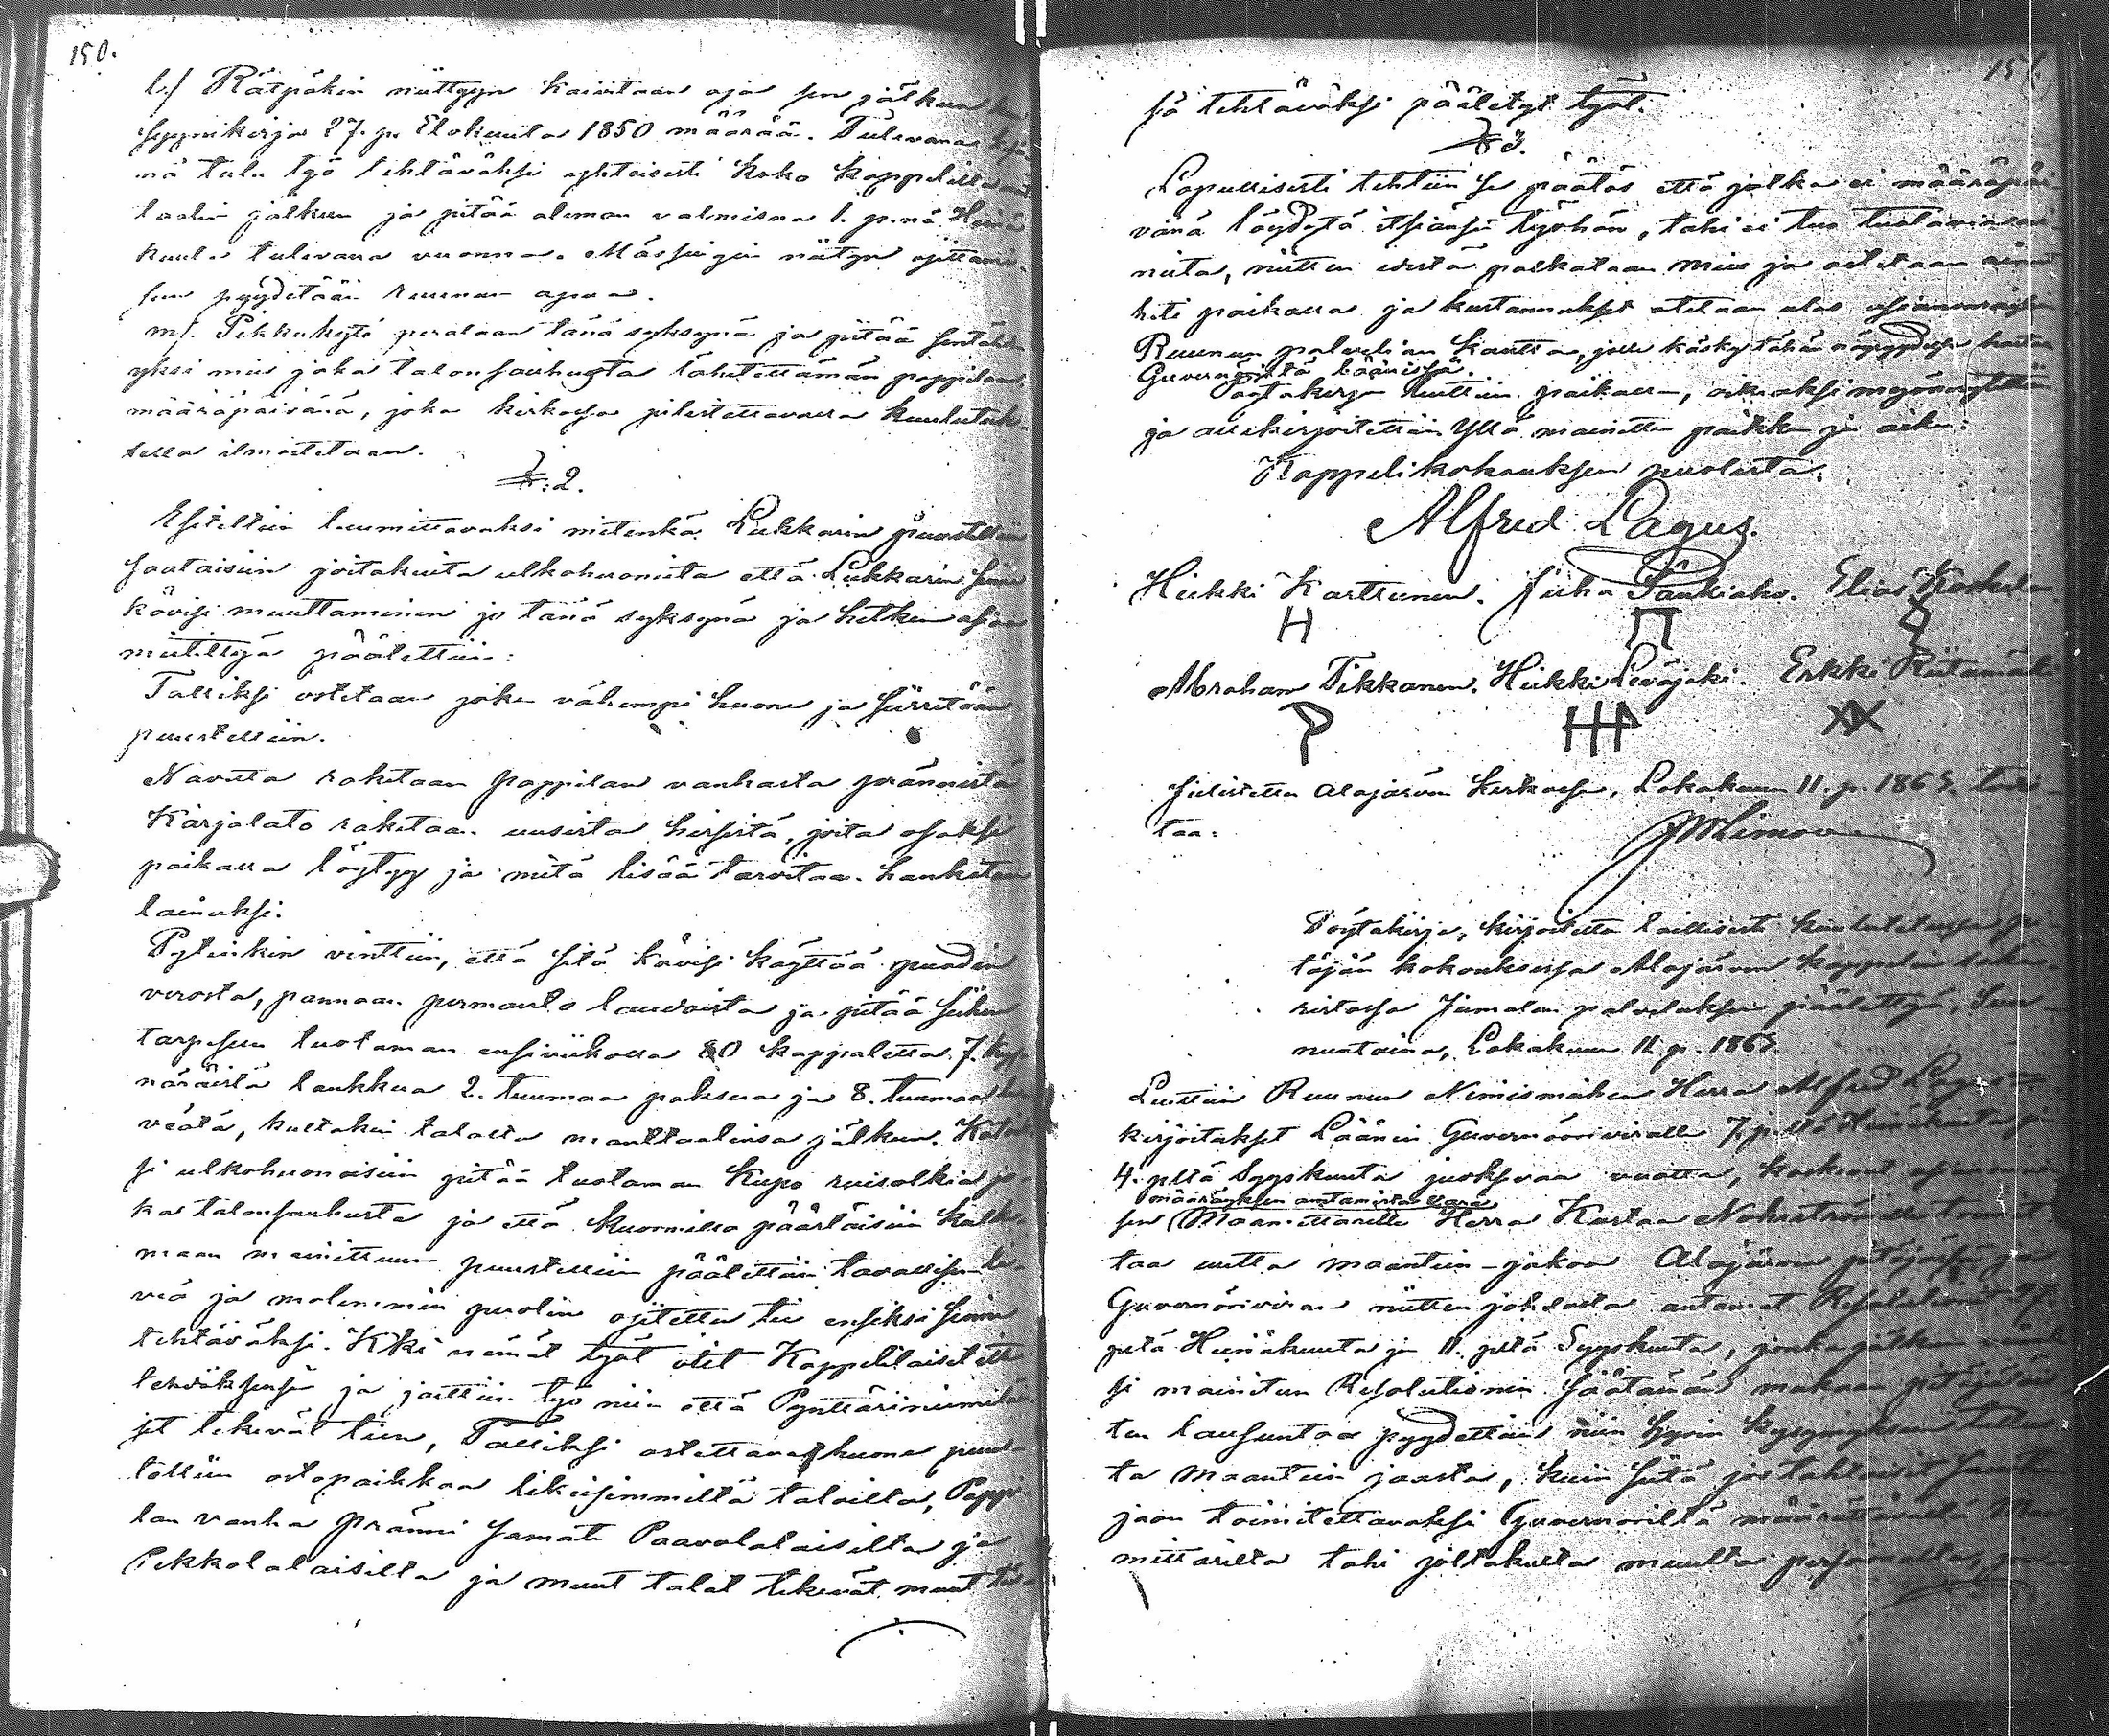 150.
l./ Rätpäkin niittyyn kaivetaan oja sen jälkeen kun
syynikirja 27. p. Elokuuta 1850 määrää. Tulevana kesä-
nä tulee työ tehtäväksi yhteisesti koko kappelilta mant-
taalin jälkeen ja pitää oleman valmisna 1. p:nä Heinä
kuuta tulevana vuonna. Mässingin niityn ojittami-
seen pyydetään ruunun apua.
m/. Pikkukytö perataan tänä syksynä ja pitää sentähden
yksi mies joka talonsavhusta lähetettämän pappilaan
määräpäivänä, joka kirkossa julistettavassa kuulutuk-
sessa ilmoitetaan.
§:2.
Esiteltiin tuumittavaksi mitenkä Lukkarin puustelliin
saataisiin joitakuita ulkohuoneita että Lukkarin sinne
kävisi muuttaminen jo tänä syksynä ja hetken asiaa
mietittyä päätettiin:
Talliksi ostetaan joku vähempi huone ja siirretään
puustelliin.
Navetta raketaan pappilan vanhasta prännistä
Karjalato raketaan uusista hirsistä, joita osaksi
paikassa löytyy ja mitä lisää tarvitaan hanketaan
lainaksi.
Pytinkin vinttiin, että sitä kävisi käyttää puodin
verosta, pannaan permanto laudoista ja pitää siihen
tarpeseen tuotaman ensiviikolla 80 kappaletta 7. kyy-
näräistä lankkua 2. tuumaa paksua ja 8. tuumaa le-
veätä, kustakin talosta manttaalinsa jälkeen. Katok-
si ulkohuoneisiin pitää tuotaman kupo ruisolkia jo-
ka talonsauhusta ja että kuormilla päästäisiin kulke-
maan mainittuun puustelliin päätettiin tavallisen le-
veä ja molemmin puolin ojitettu tie ensiksi sinne
tehtäväksi. Kaikki nämät työt otit Kappelilaiset itse
tehdäksensä ja jaettiin työ niin että Pynttäriniemiläi-
set tekevät tien, Talliksi ostettava huone puus-
telliin ostopaikkaa likeisimmiltä taloilta, Pappi-
lan vanha pränni samate Paavolalaisilta ja
Pekkolalaisilta ja muut talot tekevät muut täs-
151.
sä tehtäväksi päätetyt työt.
§ 3.
Lopullisesti tehtiin se päätös että jolka ei määräpäi-
vänä löydytä itsiänsä työhön, tahi ei tuo tuotavinsai-
neita, niitten edestä palkataan mies ja ostetaan ainet
heti paikassa ja kustannukset otetaan ulos asianomaisilta
Ruunun palvelian kautta, jolle käsky tähän nöyryydessä haetaan
Guvernööriltä läänissä.
Pöytäkirja luettiin paikassa, oikiaksi myönnyttiin
ja allekirjoitettiin Yllä mainittu paikka ja aika:
Kappelikokouksen puolesta:
Alfred Lagus.
Heikki Karttunen. Juha Sänkiaho. Elias Koskela
Abraham Tikkanen. Heikki Levijoki. Erkki Riitamäki
Julistettu Alajärven kirkossa, Lokakuun 11. p. 1863. todis
taa:
Pöytäkirja, kirjoitettu laillisesti kuulutetussa pi-
täjän kokouksessa Alajärven kappelin saka-
ristossa Jumalan palveluksen päätettyä, Sun-
nuntaina, Lokakuun 11 p. 1863.
Luettiin Ruunun Nimismiehen Herra Alfred Lagus
kirjoitukset Läänin Guvernööriviralle 7. p:ltä Heinäkuuta ja
4. p:ltä Syyskuuta juoksevaa vuotta, koskevat
määräyksen antamista
sen Maanmittarille Herra Kustaa toimit-
taa uutta maantien-jakoa Alajärven pitäjässä ja
Guvernöriviran niitten johdosta antamat Resolutionit
p:ltä Heinäkuuta ja 11. p:ltä Syyskuuta, jonka jälkeen
si mainitun Resolutionin säätämän mukaan pitäjäläis-
ten lausuntoa pyydettiin niin hyvin kysymykseen tullees-
ta maantien jaosta, kuin siitä jos tahtoisit saman
jaon toimitettavaksi Guvernöriltä määrättävältä Maan
mittarilta tahi joltakulta muulta personalta,